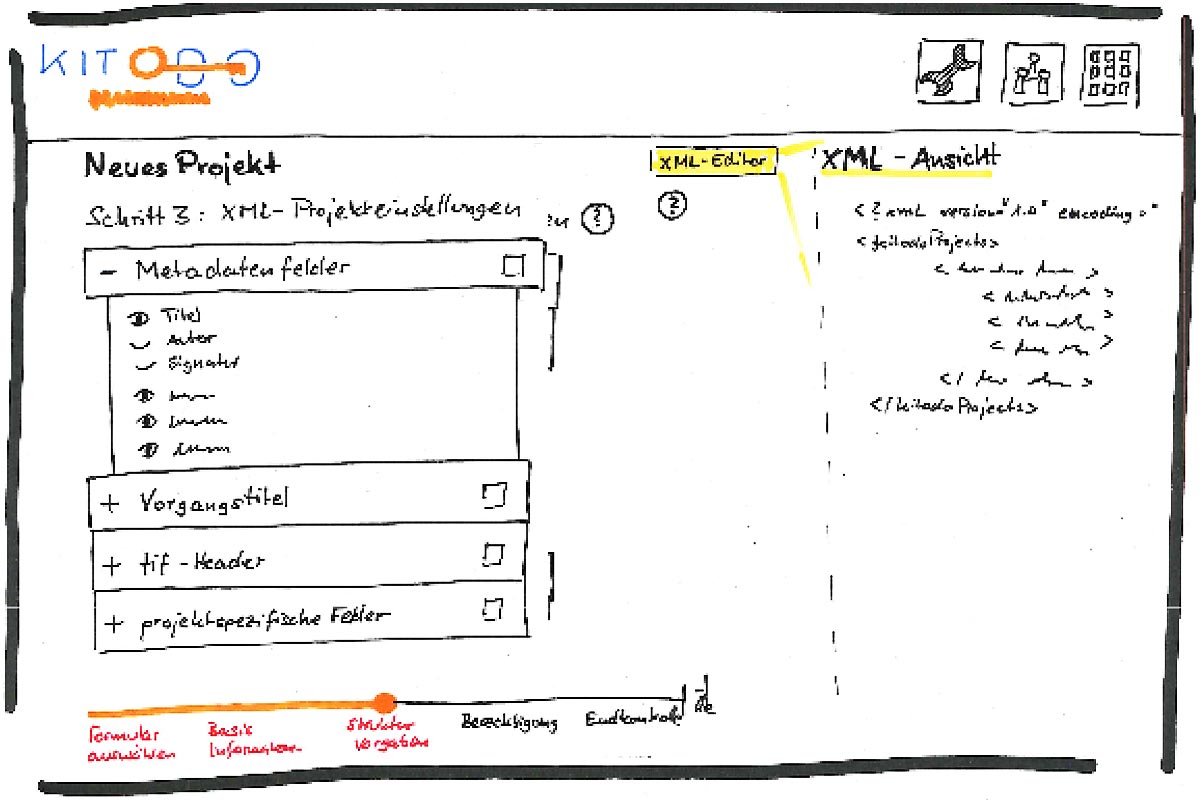 KITODO
Neues Projekt
Schritt 3: XML-Projekteinstellungen
?
- Metadatenfelder
Titel
Autor
Signatur
+ Vorgangstitel
+ tif-Header
+ projektspezifische Felder
XML-Editor
?
XML-Ansicht
<?xml version="1.0" encoding="
<kitodoProjects>
</kitodoProjects>
Formular
auswählen
Basis
Informationen
Struktur
vorgaben
Berechtigung
Endkontrolle